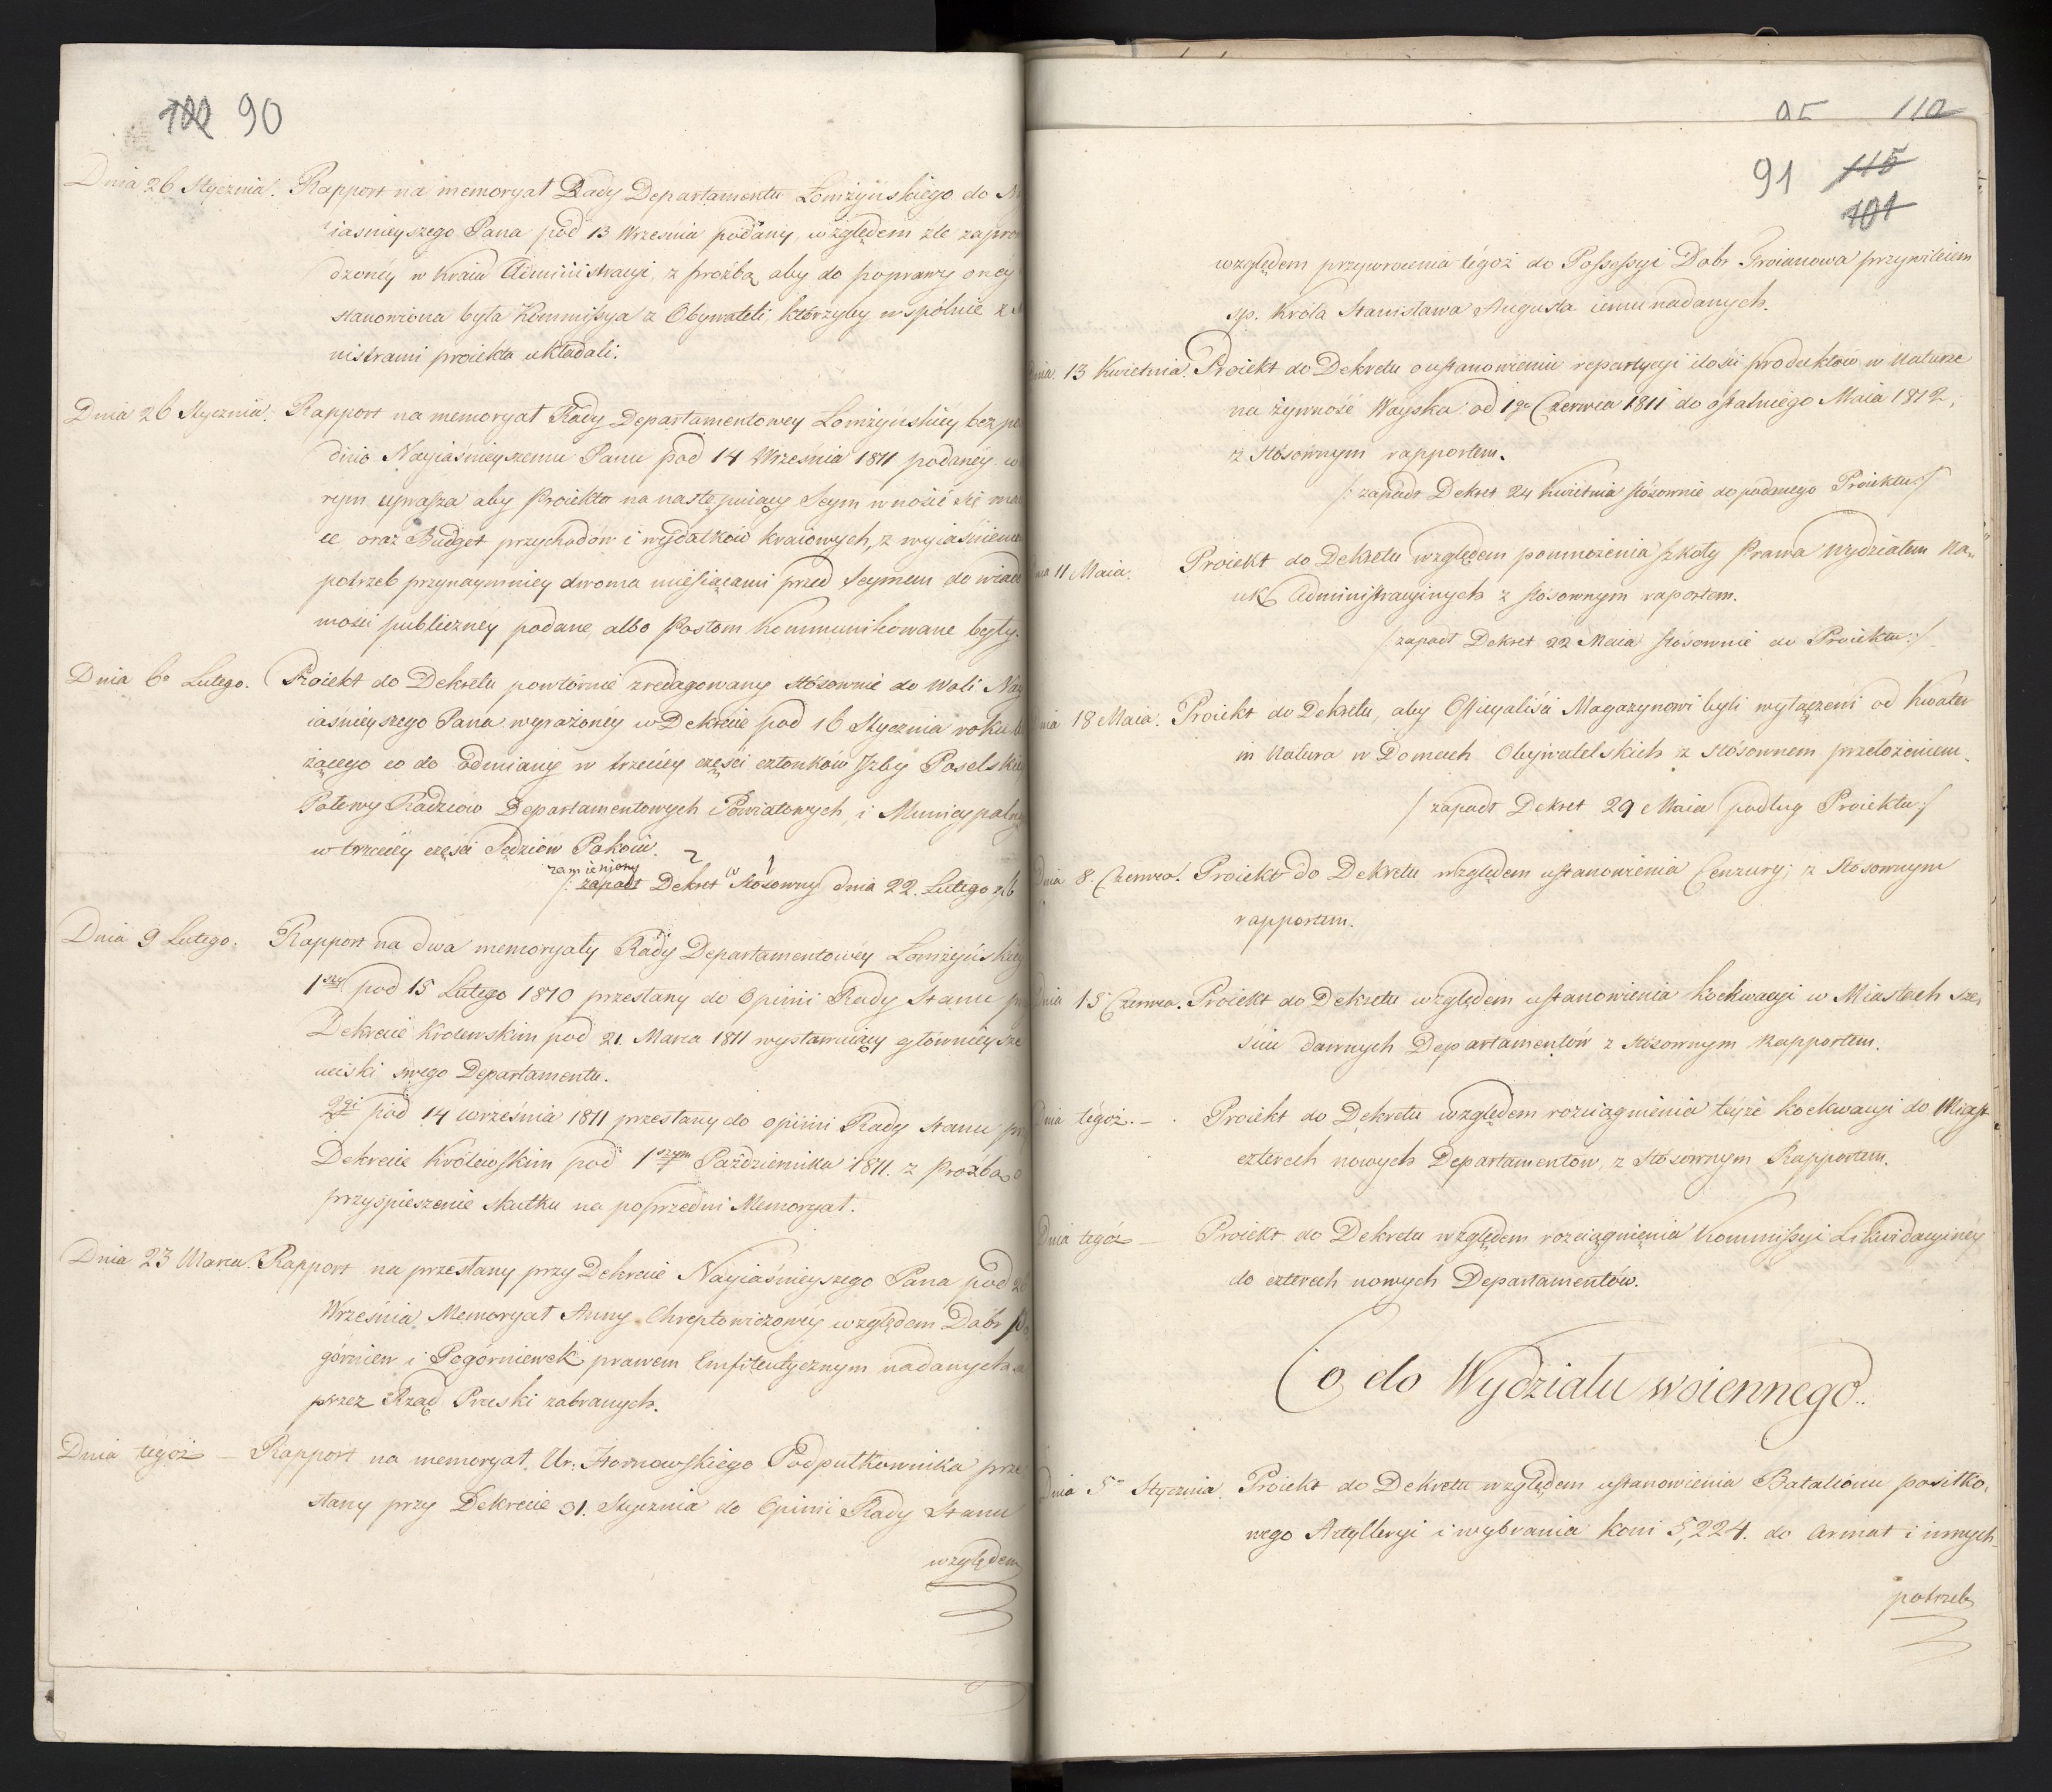 100 90
Dnia 26 Stycznia. Rapport na memoryał Rady Departamentu Łomżyńskiego do
iaśnieyszego Pana pod 13 Września podany, względem źle
dzonéy w kraiu Administracyi, z proźbą aby do poprawy onéy
stanowiona była Kommissya z Obywateli, którzyby wspólnie z
nistrami proiekta układali.
Dnia 26 Stycznia. Rapport na memoryał Rady Departamentowey Łomżyńskiéy
dnio Nayiaśnieyszemu Panu pod 14 Września 1811 podanéy w
rym uprasza aby Proiekta na następuiący Seym wnosić się
ce oraz Budget przychodów i wydatków kraiowych, z
potrzeb przynaymniey dwoma miesiącami przed Seymem do
mości publicznéy podane, albo Posłom kommunikowane były.
Dnia 6º Lutego. Proiekt do Dekretu powtórnie zredagowany stósownie do Woli
iaśnieyszego Pana wyrażonéy w Dekrecie pod 16 Stycznia roku
żącego co do odmiany w trzeciéy części członków Izby
Połowy Radzców Departamentowych i Powiatowych, i
w trzeciéy części Sędziów Pokoiu.
zamieniony
/: zapadł Dekret w Stósowny dnia 22. Lutego
Dnia 9 Lutego. Rapport na dwa memoryały Rady Departamentowéy
1szy pod 15 Lutego 1810 przesłany do Opinii Rady Stanu
Dekrecie Krolewskim pod 21. Marca 1811 wystawuiący głównieysze
uciski swego Departamentu.
2gi pod 14 września 1811 przesłany do opinii Rady Stanu
Dekrecie Królewskim pod 1szym Października 1811. z proźbą o
przyspieszenie skutku na poprzedni Memoryał.
Dnia 23 Marca. Rapport na przesłany przy Dekrecie Nayiaśnieyszego Pana pod
Września Memoryał Anny Chreptowiczowéy względem Dóbr
górniew i Pogórniewek prawem Emfiteutycznym nadanych a
przez Rząd Pruski zabranych.
Dnia tégoż — Rapport na memoryał Ur: Podpułkownika prze
słany przy Dekrecie 31. Stycznia do Opinii Rady Stanu
względem
95 110
91 115
101
względem przywrócenia tégoż do Possessyi Dóbr Troianowa przywileiem
sp. Króla Stanisława Augusta iemu nadanych.
13 Kwietnia. Proiekt do Dekretu o ustanowieniu repartycyi ilości produktów w naturze
na żywność Woyska od 1go Czerwca 1811 do ostatniego Maia 1812,
z stósownym rapportem.
/: zapadł Dekret 24 Kwietnia stósownie do podanego Proiektu :/
11 Maia. Proiekt do Dekretu względem pomnożenia Szkoły Prawa Wydziałem Na„
uk Administracyinych z stósownym raportem.
/: zapadł Dekret 22 Maia stósownie do Proiektu :/
18 Maia. Proiekt do Dekretu, aby Officyaliści Magazynowi byli wyłączeni od Kwater
in Natura w Domach Obywatelskich z stósownem przełożeniem.
/ zapadł Dekret 29 Maia podług Proiektu :/
Dnia 8 Czerwca. Proiekt do Dekretu względem ustanowienia Cenzury, z Stosownym
rapportem.
Dnia 15 Czerwca. Proiekt do Dekretu względem ustanowienia koekwacyi w Miastach sze„
ściu dawnych Departamentów z stósownym Rapportem.
Dnia tégoż. — Proiekt do Dekretu względem rozciągnienia téyże koekwacyi do Miast
czterech nowych Departamentów, z stósownym Rapportem.
Dnia tégoż — Proiekt do Dekretu względem rozciągnienia Kommissyi Likwidacyinéy
do czterech nowych Departamentów.
Co do Wydziału woiennego.
Dnia 5º Stycznia. Proiekt do Dekretu względem ustanowienia Batalionu posiłko„
wego Artylleryi i wybrania koni 5,224. do armat i innych
potrzeb